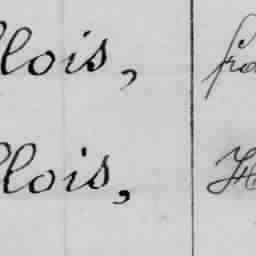 llois, fra
llois, H